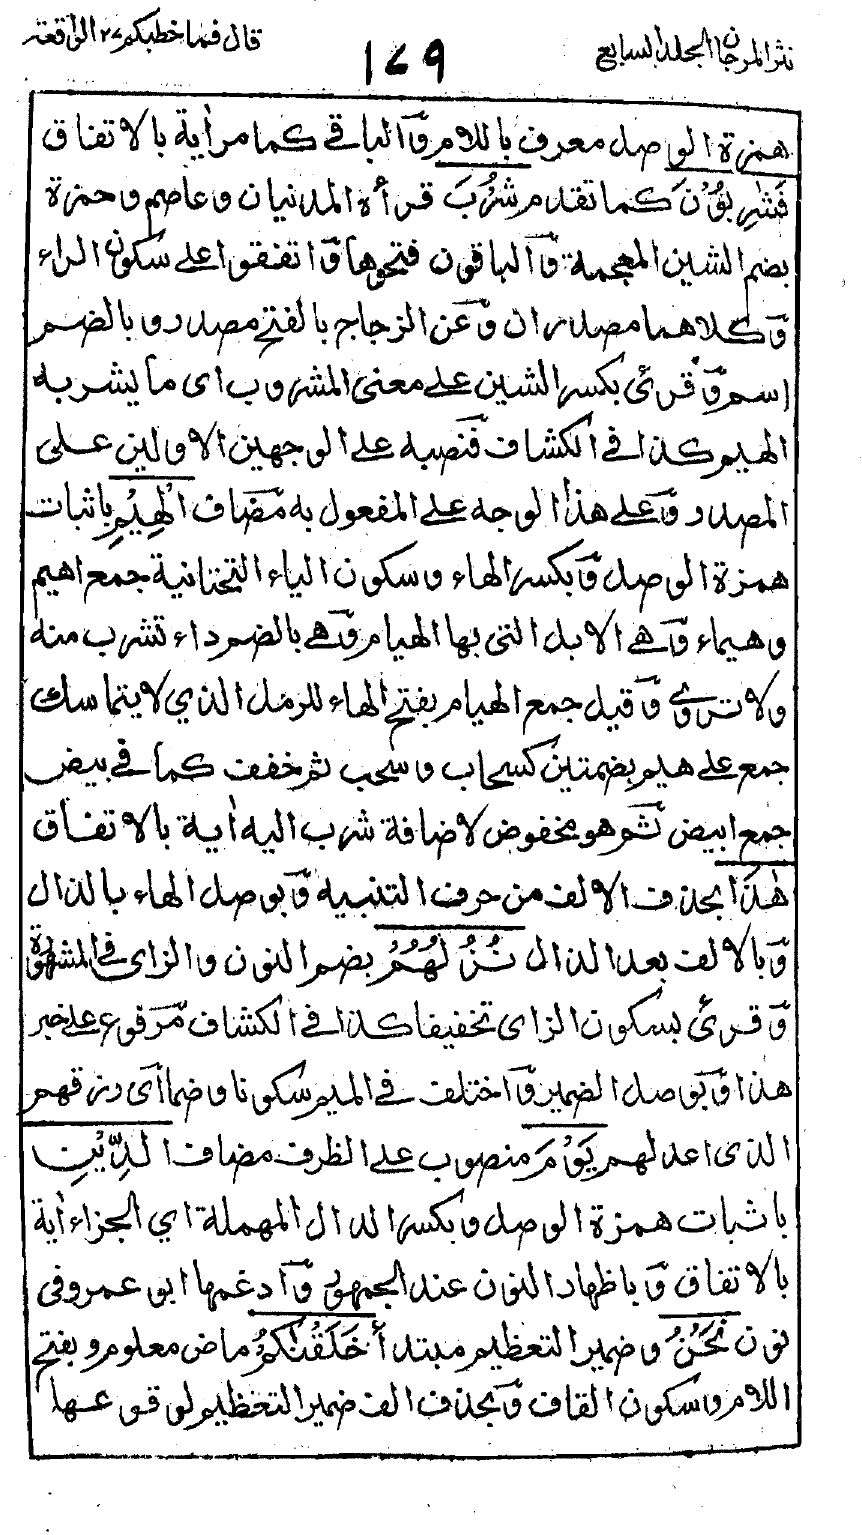 نثر المرجان المجلد السابع
١٦٩
قال فما خطبكم ٢٧ الواقعة
همزة الوصل معرف باللام وٓالباقي كما مر اٰية بالاتفاق
فَشٰرِبُوْنَ كما تقدم شُرْبَ قرأه المدنيان وعاصم وحمزة
بضم الشين المعجمة وٓالباقون فتحوها وٓاتفقوا على سكون الراء
وٓكلاهما مصدران وٓعن الزجاج بالفتح مصدر وبالضم
اسم وٓقرئ بكسر الشين على معنى المشروب اى ما يشربه
الهيم كذا في الكشاف فٓنصبه على الوجهين الاولين على
المصدر وٓعلى هذا الوجه على المفعول به مٓضاف الْهِيْمِ باثبات
همزة الوصل وٓبكسر الهاء وسكون الياء التحتانية جمع اهيم
وهيماء وٓهي الابل التى بها الهيام وٓهي بالضم داء تشرب منه
ولا تروي وٓقيل جمع الهيام بفتح الهاء للرمل الذي لا يتماسك
جمع على هيم بضمتين كسحاب وسحب ثم خففت كما في بيض
جمع ابيض ثٓم هو مخفوض لاضافة شرب اليه اٰية بالاتفاق
هٰذَا بحذف الالف من حرف التنبيه وٓبوصل الهاء بالذال
وٓبالالف بعد الذال نُزُلُهُمْ بضم النون والزاى في المشهورة
وٓقرئ بسكون الزاى تخفيفا كذا في الكشاف مٓرفوع على خبر
هذا وٓبوصل الضمير وٓاختلف في الميم سكونا وضما آى رزقهم
الذى اعد لهم يَوْمَ منصوب على الظرف مضاف الدِّيْنِ
باثبات همزة الوصل وبكسر الدال المهملة اي الجزاء اٰية
بالاتفاق وٓباظهار النون عند الجمهور وٓادغمها ابو عمرو في
نون نَحْنُ وضمير التعظيم مبتدأ خَلَقْنٰكُمْ ماض معلوم وبفتح
اللام وسكون القاف وٓبحذف الف ضمير التعظيم لوقوعها